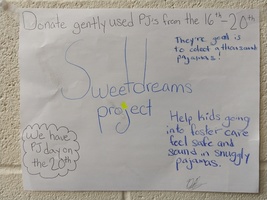 Donate gently used PJ's from the 16th-20th
They're goal is
to colect a thousand
pajamas!
Sweetdreams
project
Help kids going
into foster care
feel safe and
sound in snuggly
pajamas.
We have
PJ day on
the 20th